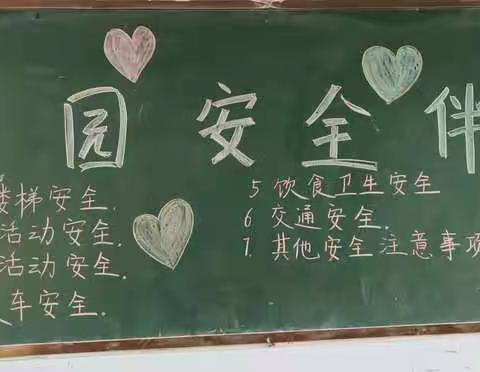 园安全伴
楼梯安全.
活动安全.
活动安全.
车安全.
5 饮食卫生安全
6 交通安全.
7. 其他安全注意事项